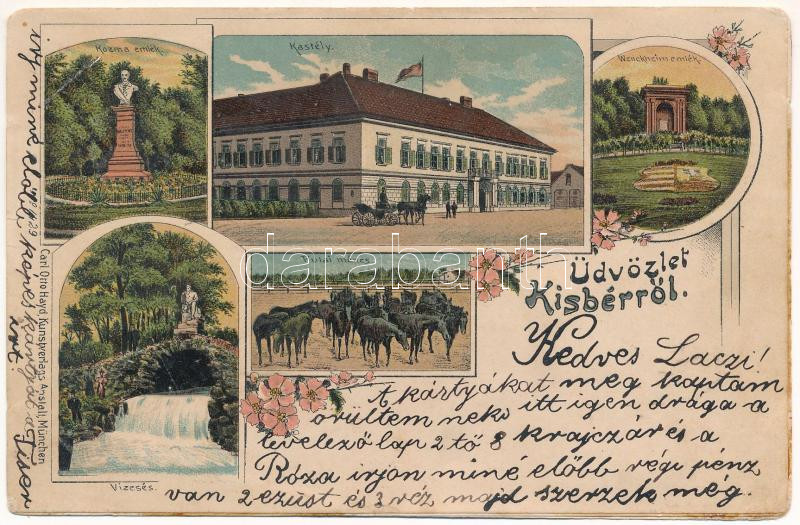 Kozma emlék.
Kastély.
Wenckheim emlék.
Üdvözlet
Kisbérről.
Vizesés.
Carl Otto Hayd, Kunstverlags Anstalt, München
darabanth.com
Kedves Laczi!
A kártyákat meg kaptam
örültem neki itt igen drága a
levelező lap 2 től 8 krajczár és a
Róza irjon miné előbb régi pénz
van 2 ezüst és 3 réz majd szerzek még.
irj miné előbb
képes kártyát a Füser